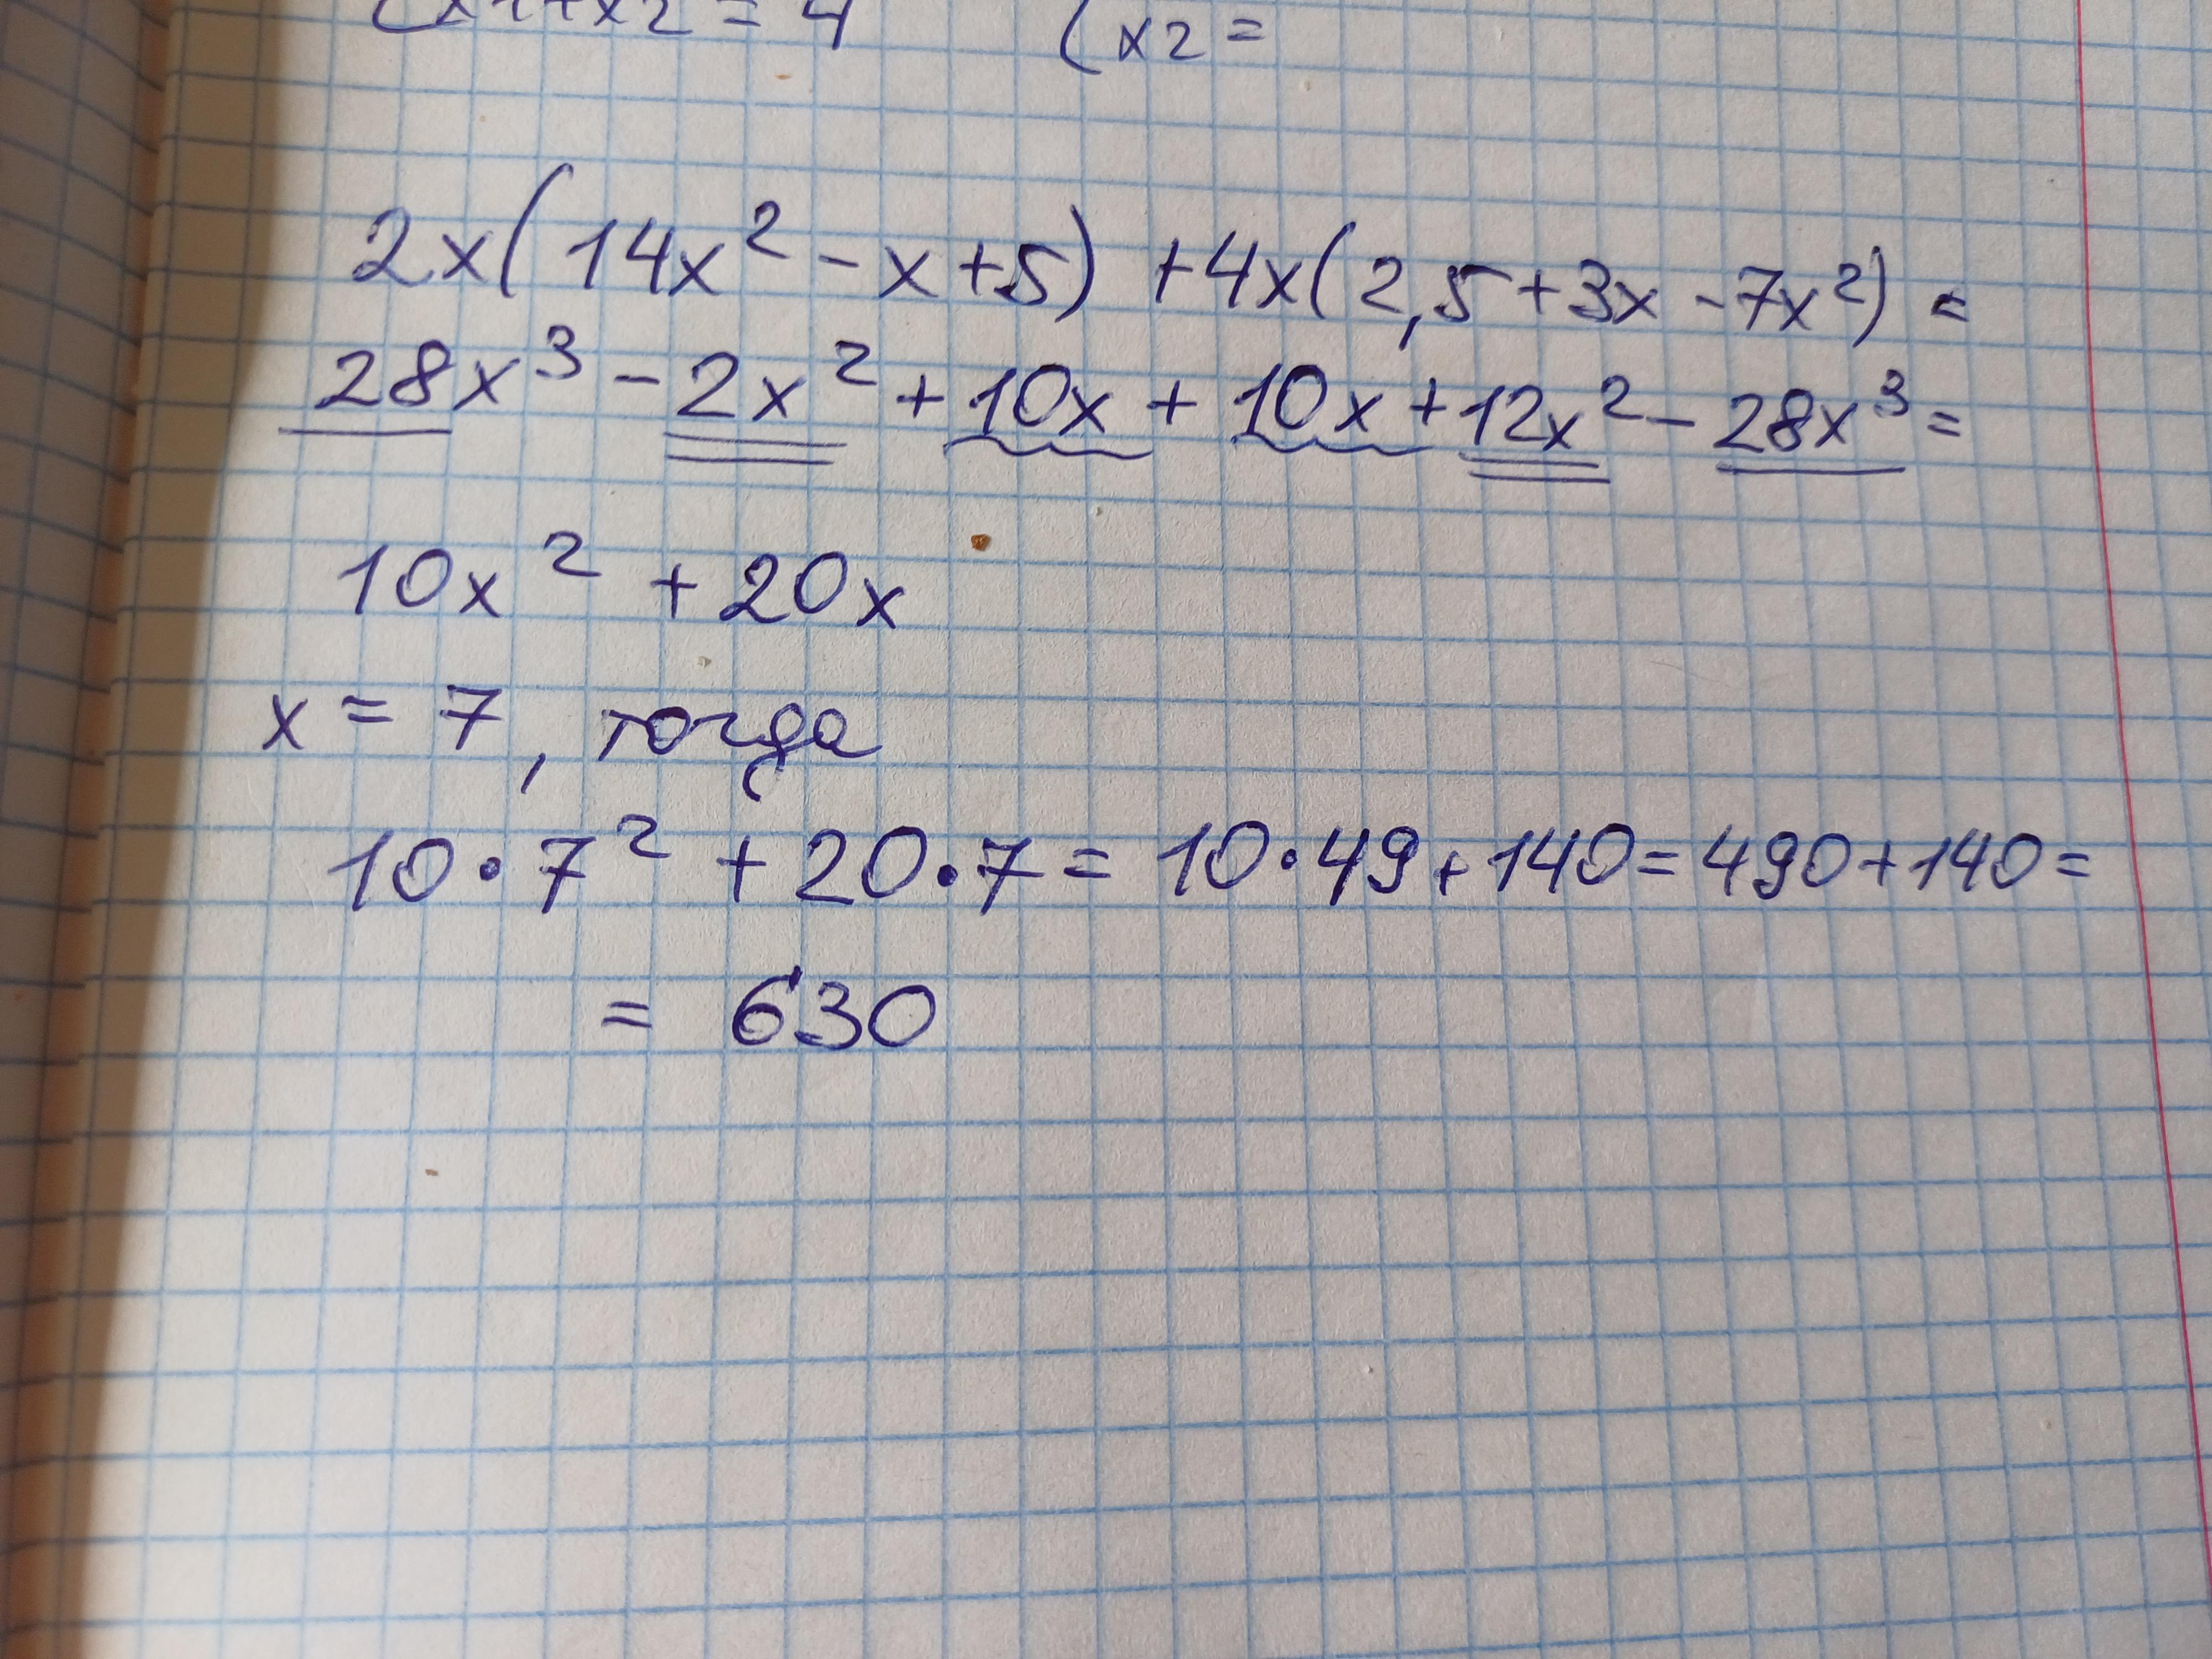 x1+x2 = 4 (x2 =
2x(14x² - x + 5) + 4x(2,5 + 3x - 7x²) =
28x³ - 2x² + 10x + 10x + 12x² - 28x³ =
10x² + 20x
x = 7, тогда
10 • 7² + 20 • 7 = 10 • 49 + 140 = 490 + 140 =
= 630